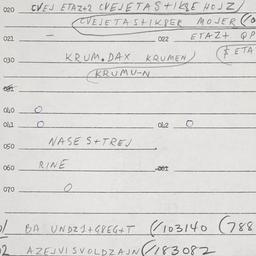 020 CVEJETAZ+2 CVEJETAS+IKBE HOJZ/
(CVEJETAS+IKBER MOJER (/0
021 — 022 ETAZ+ QP
030 KRUM.DAX KRUMEN/ ($ETA
(KRUMU-N
031
040 O
041 O 042 O
050 NASES+TREJ
060 RINE 061
070 O
BA UNDZ1+G8EG+T (/103140 (788
2 AZEJVISVOLDZAJN (/183082